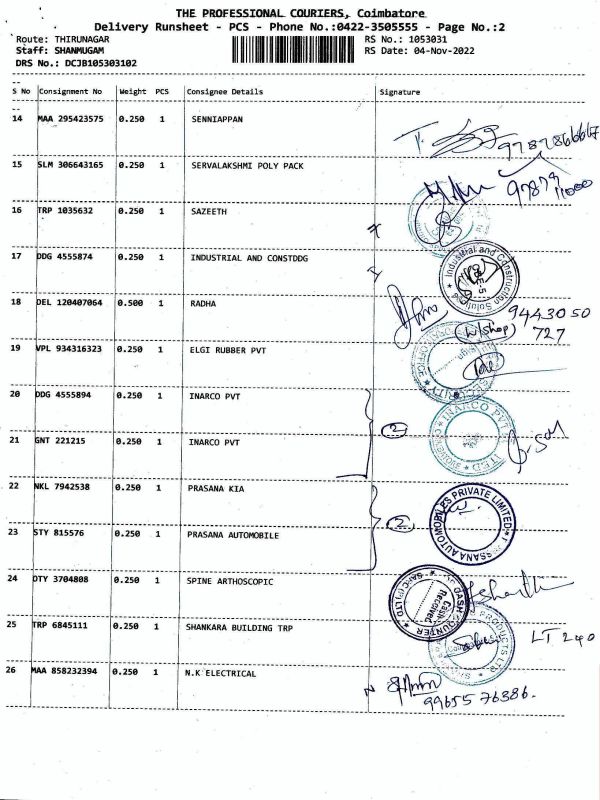 THE PROFESSIONAL COURIERS, Coimbatore
Delivery Runsheet - PCS - Phone No.:0422-3505555 - Page No.:2
Route: THIRUNAGAR RS No.: 1053031
Staff: SHANMUGAM RS Date: 04-Nov-2022
DRS No.: DCJB105303102
S No Consignment No Weight PCS Consignee Details Signature
14 MAA 295423575 0.250 1 SENNIAPPAN
15 SLM 306643165 0.250 1 SERVALAKSHMI POLY PACK
16 TRP 1035632 0.250 1 SAZEETH
17 DDG 4555874 0.250 1 INDUSTRIAL AND CONSTDDG
Industrial and Construction Solutions
18 DEL 120407064 0.500 1 RADHA
9443050
(W/shop) 727
19 VPL 934316323 0.250 1 ELGI RUBBER PVT
SECURITY
20 DDG 4555894 0.250 1 INARCO PVT
2
INARCO PVT
21 GNT 221215 0.250 1 INARCO PVT
22 NKL 7942538 0.250 1 PRASANA KIA
2
23 STY 815576 0.250 1 PRASANA AUTOMOBILE
24 DTY 3704808 0.250 1 SPINE ARTHOSCOPIC
CASH COUNTER
Cash
Received
25 TRP 6845111 0.250 1 SHANKARA BUILDING TRP
PRODUCTS LTD
LT 240
26 MAA 858232394 0.250 1 N.K ELECTRICAL
9965576386.